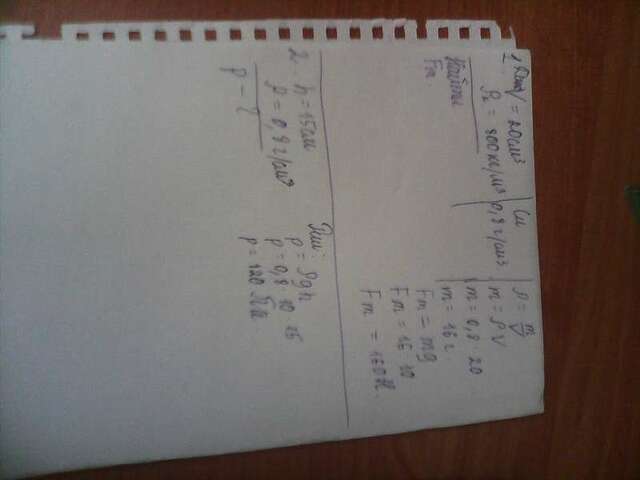 1. Дано V = 20см³
ρ₂ = 800кг/м³
Найти
Fт
Си
0,8 г/см³
ρ = m/V
m = ρV
m = 0,8 · 20
m = 16 г
Fт = mg
Fт = 16 · 10
Fт = 160 Н.
2. h = 15см
ρ = 0,8 г/см³
p - ?
Реш:
p = ρgh
p = 0,8 · 10 · 15
p = 120 Па